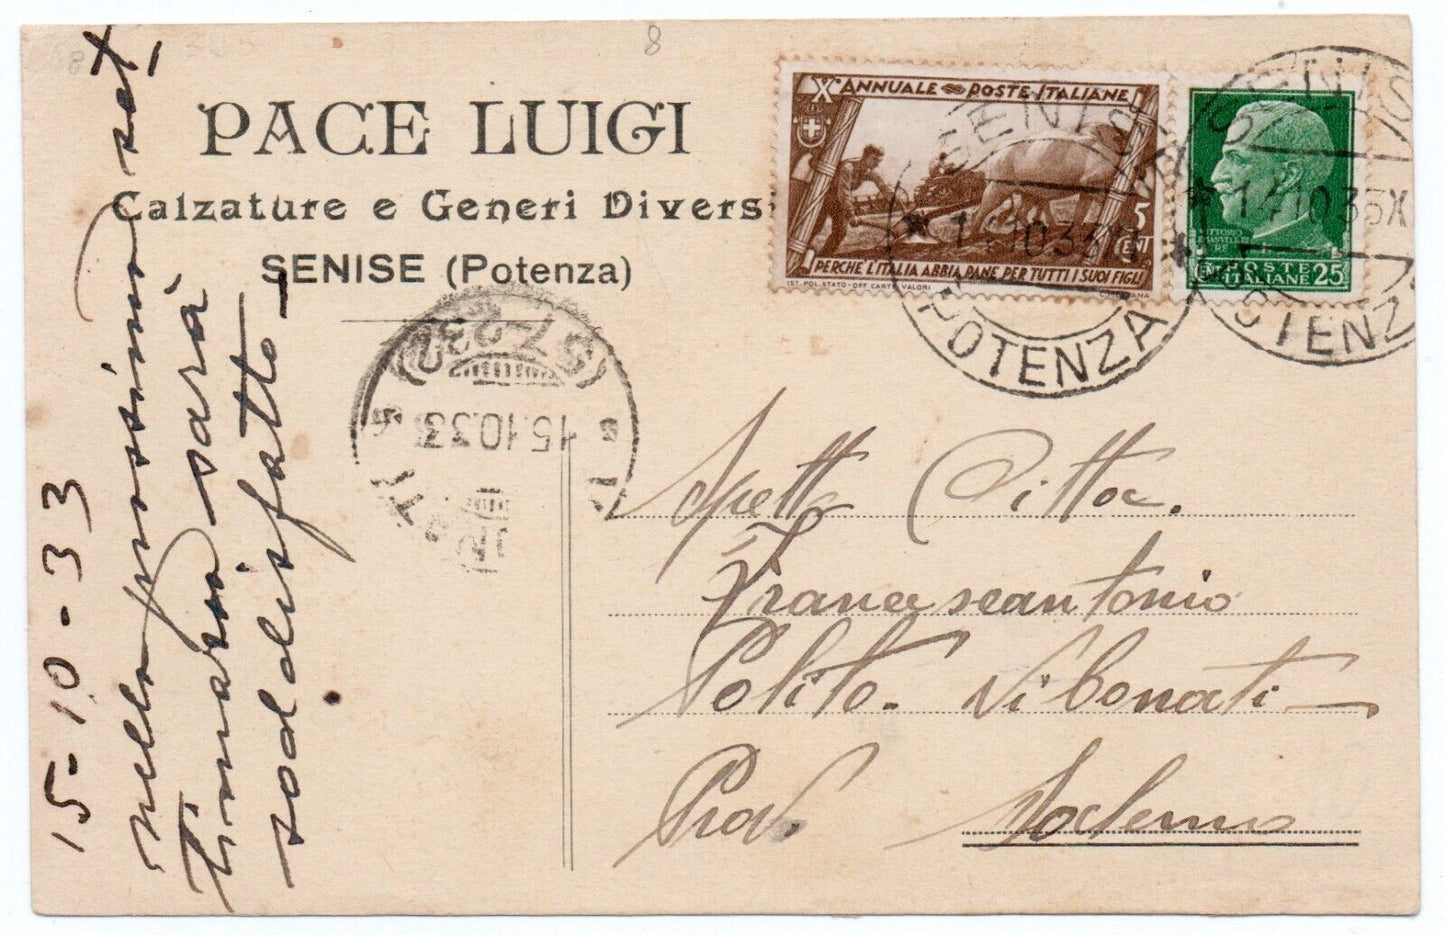 PACE LUIGI
Calzature e Generi Diversi
SENISE (Potenza)
Xº ANNUALE POSTE ITALIANE
5
CENT
PERCHE L'ITALIA ABBIA PANE PER TUTTI I SUOI FIGLI
IST. POL. STATO - OFF. CARTE VALORI
VITTORIO
EMANUELE III
RE
POSTE
ITALIANE 25
SENISE
14.10.33 XI
POTENZA
SENISE
14.10.33 X
POTENZA
15.10.33
Spett Ditta
Francescantonio
Polito. Vibonati
Prov. Salerno
15-10-33
nella prossima set
timana sarà
soddisfatto-
8